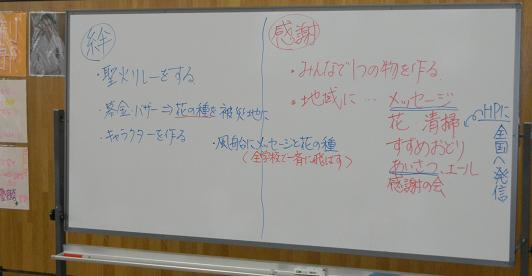 絆
・聖火リレーをする
・募金・バザー ⇒ 花の種を被災地に
・キャラクターを作る
・風船にメッセージと花の種
(全学校で一斉に飛ばす)
感謝
・みんなで1つの物を作る
・地域に… メッセージ
花 清掃
すずめおどり
あいさつ、エール
感謝の会
HPに
全国へ発信